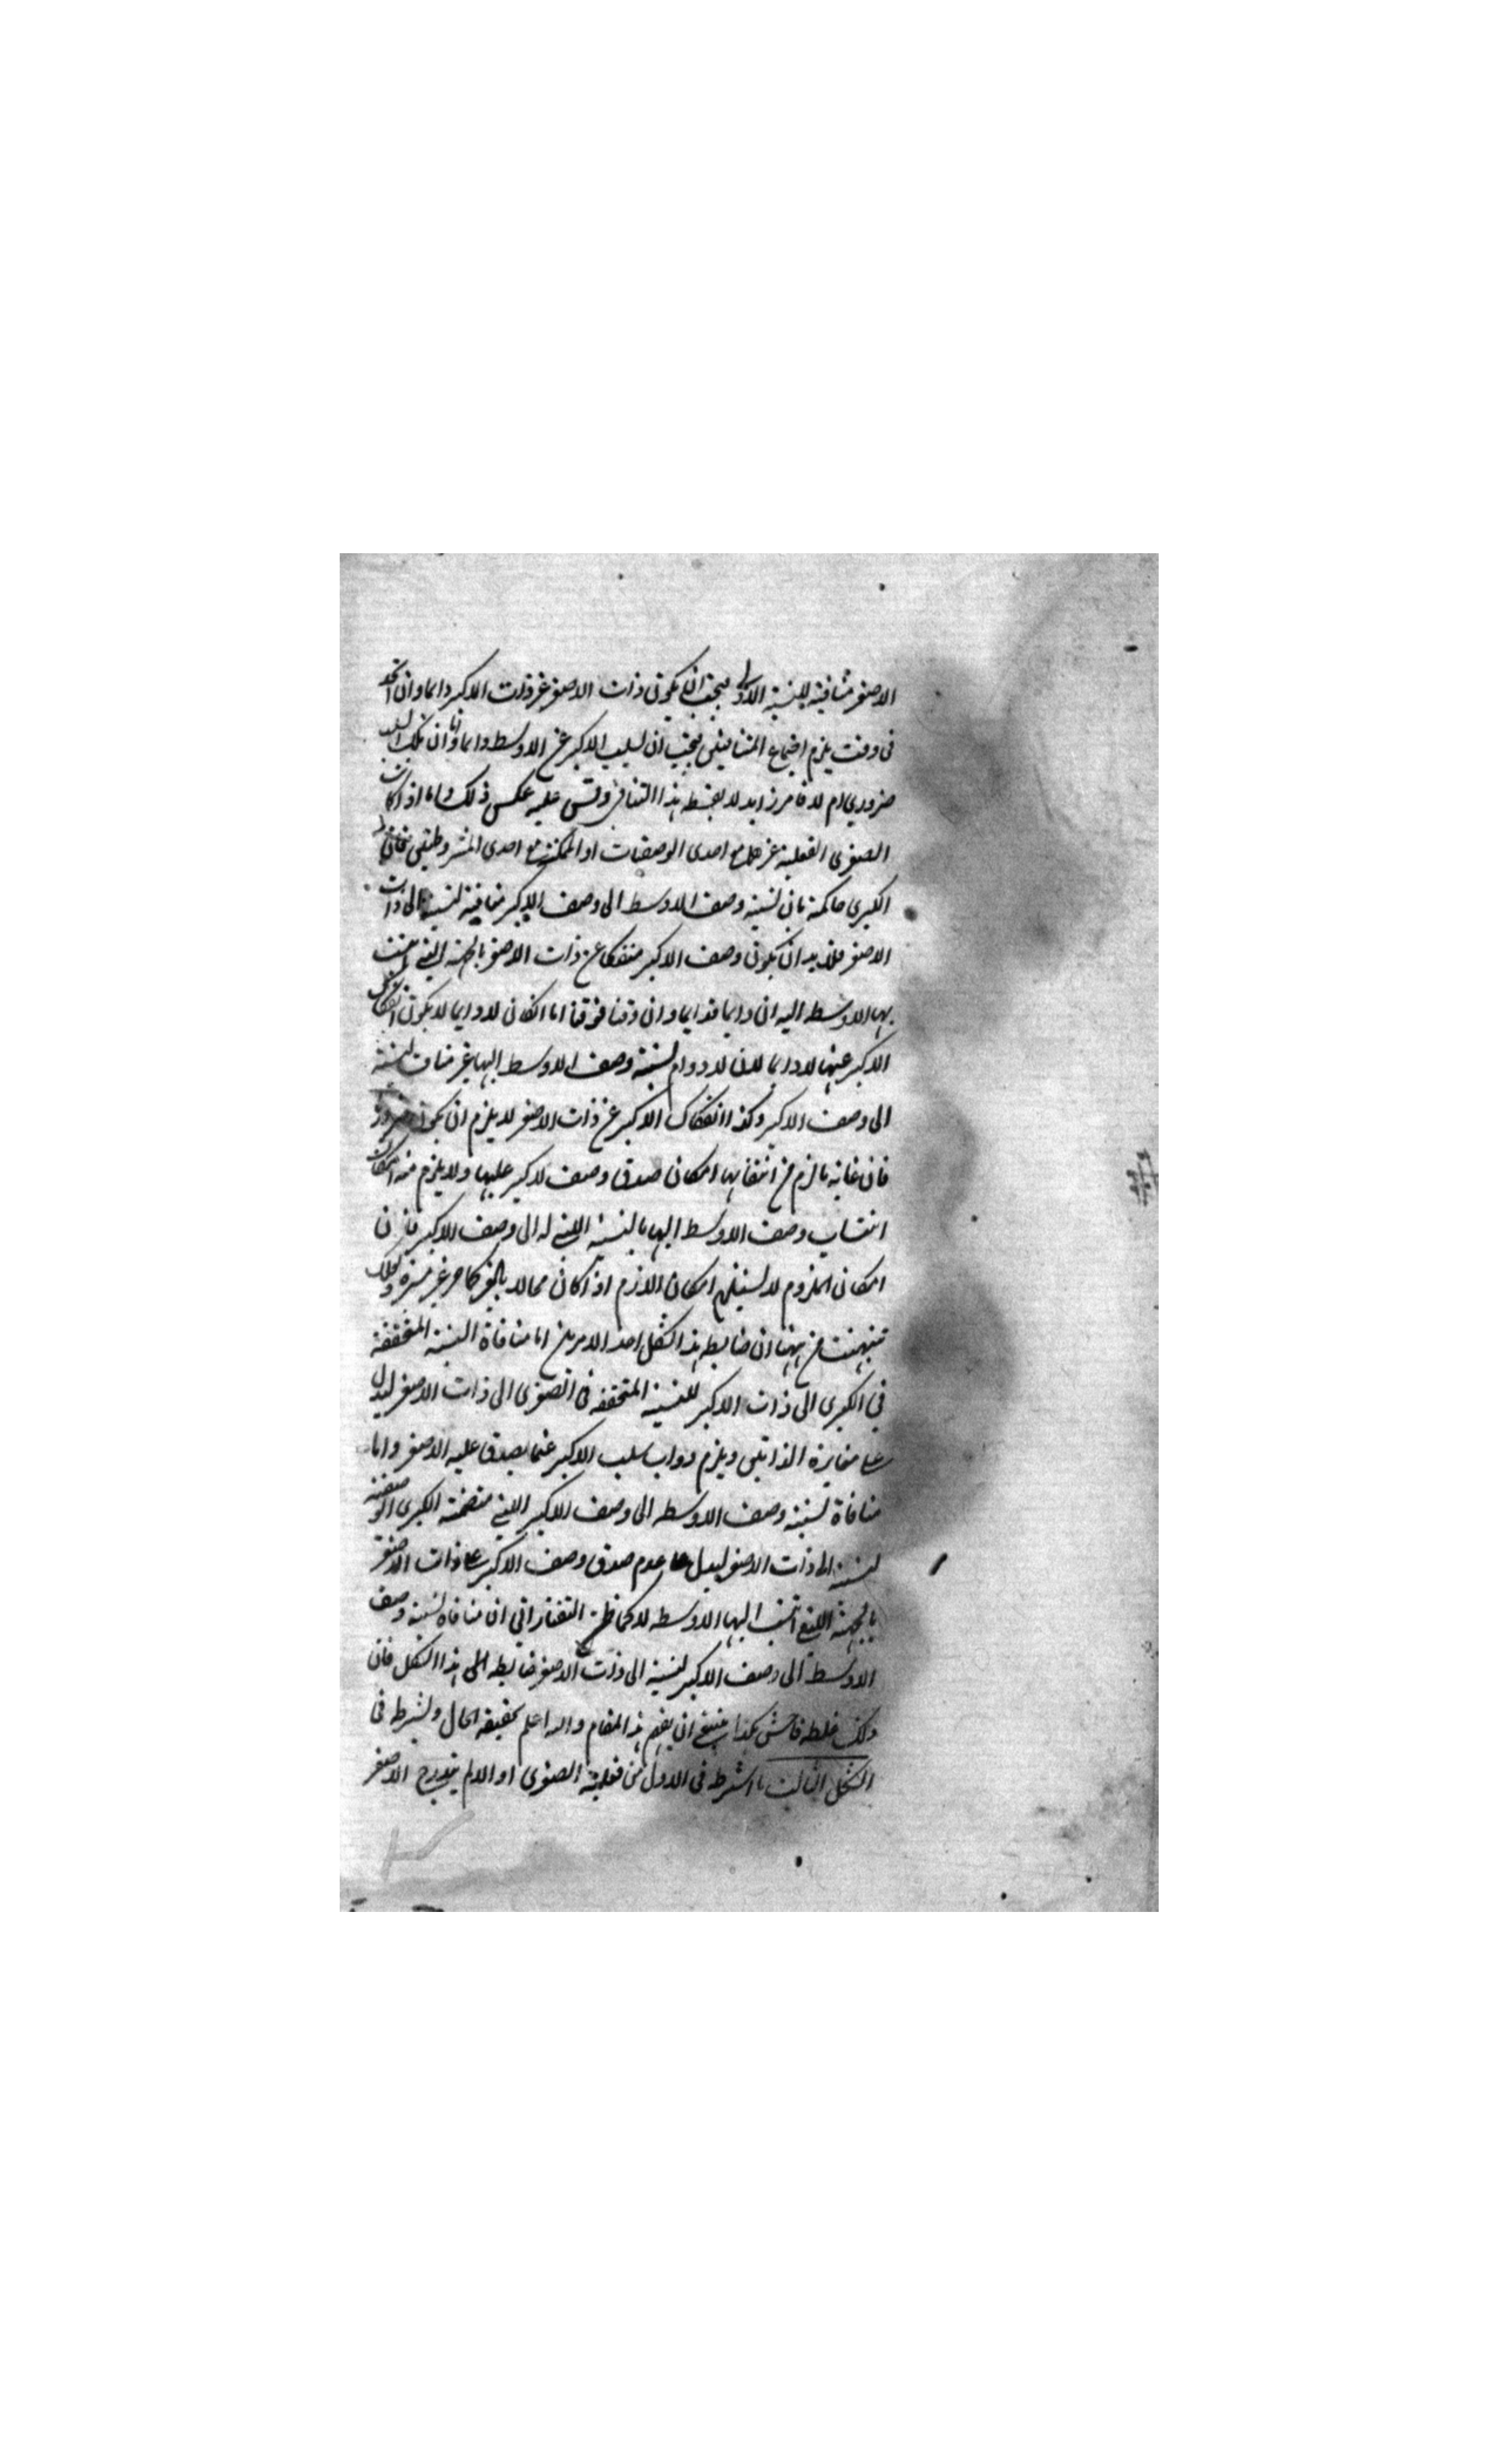 الاصغر منافية للنسبة الاولى فيجب ان يكون ذات الاصغر غير ذات الاكبر دائما وان اتحد
فى وقت يلزم اجتماع المتنافيين فيجب ان يسلب الاكبر عن الاوسط دائما واما ان تلك السلب
ضرورى ام لا فامر زايد لا يضبطه هذا التنافى وقس عليه عكس ذلك واما اذا كانت
الصغرى الفعلية مع احدى الوصفيات او الممكنة مع احدى المشروطتين فان
الكبرى حاكمة بان نسبة وصف الاوسط الى وصف الاكبر منافية لنسبة الى ذات
الاصغر فلا بد ان يكون وصف الاكبر منفكا عن ذات الاصغر بالجهة التى
بها الاوسط اليه ان دايما فدايما وان وقتا فوقتا اما ان كان لا دايما لا يكون انفكاك
الاكبر عنها لا دايما لان لا دوام نسبة وصف الاوسط اليها غير مناف لنسبة
الى وصف الاكبر وكذا انفكاك الاكبر عن ذات الاصغر لا يلزم ان يكون
فان غاية ما لزم من انتفائها امكان صدق وصف الاكبر عليها ولا يلزم منه امكان
انتساب وصف الاوسط اليها بالنسبة التى له الى وصف الاكبر فان
امكان الملزوم لا يستلزم امكان اللازم اذا كان محالا بالغير كما مر غير مرة ولعلك
تنبهت من ههنا ان ضابطة هذا الشكل احد الامرين اما منافاة النسبة المتحققة
فى الكبرى الى ذات الاكبر للنسبة المتحققة فى الصغرى الى ذات الاصغر ليدل
على مغايرة الذاتين ويلزم دوام سلب الاكبر عما يصدق عليه الاصغر واما
منافاة نسبة وصف الاوسط الى وصف الاكبر التى متضمنة الكبرى الوصفية
لنسبته الى ذات الاصغر ليدل على عدم صدق وصف الاكبر على ذات الاصغر
بالجهة التى انتسب اليها الاوسط لا كما ظن التفتازانى ان منافاة نسبة وصف
الاوسط الى وصف الاكبر لنسبته الى ذات الاصغر ضابطة هذا الشكل فان
ذلك غلط فاحش هكذا ينبغى ان يفهم هذا المقام والله اعلم بحقيقة الحال ويشترط فى
الشكل الثالث ما اشترط فى الاول من فعلية الصغرى او الا لم يندرج الاصغر